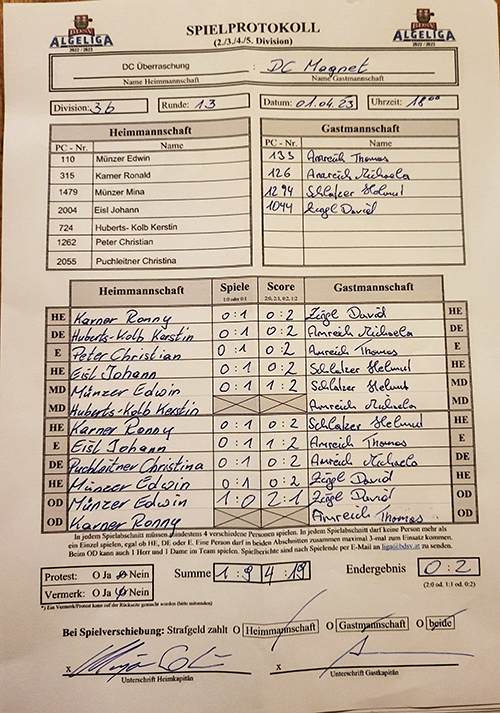 ALGELIGA
2022 / 2023
SPIELPROTOKOLL
(2./3./4./5. Division)
ALGELIGA
2022 / 2023
DC Überraschung : DC Magnet
Name Heimmannschaft Name Gastmannschaft
Division: 3b Runde: 13 Datum: 01.04.23 Uhrzeit: 18⁰⁰
Heimmannschaft Gastmannschaft
PC - Nr. Name PC - Nr. Name
110 Münzer Edwin 133 Amreich Thomas
315 Karner Ronald 126 Amreich Michaela
1479 Münzer Mina 1294 Schlatzer Helmut
2004 Eisl Johann 1044 Zügl David
724 Huberts- Kolb Kerstin
1262 Peter Christian
2055 Puchleitner Christina
Heimmannschaft Spiele Score Gastmannschaft
1:0 oder 0:1 2:0, 2:1, 0:2, 1:2
HE Karner Ronny 0:1 0:2 Zügl David HE
DE Huberts-Kolb Kerstin 0:1 0:2 Amreich Michaela DE
E Peter Christian 0:1 0:2 Amreich Thomas E
HE Eisl Johann 0:1 0:2 Schlatzer Helmut HE
MD Münzer Edwin 0:1 1:2 Schlatzer Helmut MD
MD Huberts-Kolb Kerstin Amreich Michaela MD
HE Karner Ronny 0:1 0:2 Schlatzer Helmut HE
E Eisl Johann 0:1 1:2 Amreich Thomas E
DE Puchleitner Christina 0:1 0:2 Amreich Michaela DE
HE Münzer Edwin 0:1 0:2 Zügl David HE
OD Münzer Edwin 1:0 2:1 Zügl David OD
OD Karner Ronny Amreich Thomas OD
In jedem Spielabschnitt müssen mindestens 4 verschiedene Personen spielen. In jedem Spielabschnitt darf keine Person mehr als
ein Einzel spielen, egal ob HE, DE oder E. Eine Person darf in beiden Abschnitten zusammen maximal 3-mal zum Einsatz kommen.
Beim OD kann auch 1 Herr und 1 Dame im Team spielen. Spielberichte sind nach Spielende per E-Mail an liga@bdsv.at zu senden.
Protest: O Ja O Nein Summe 1:9 4:19 Endergebnis 0:2
Vermerk: O Ja O Nein (2:0 od. 1:1 od. 0:2)
*) Ein Vermerk/Protest kann auf der Rückseite gemacht werden (bitte mitsenden)
Bei Spielverschiebung: Strafgeld zahlt O Heimmannschaft O Gastmannschaft O beide
X X
Unterschrift Heimkapitän Unterschrift Gastkapitän